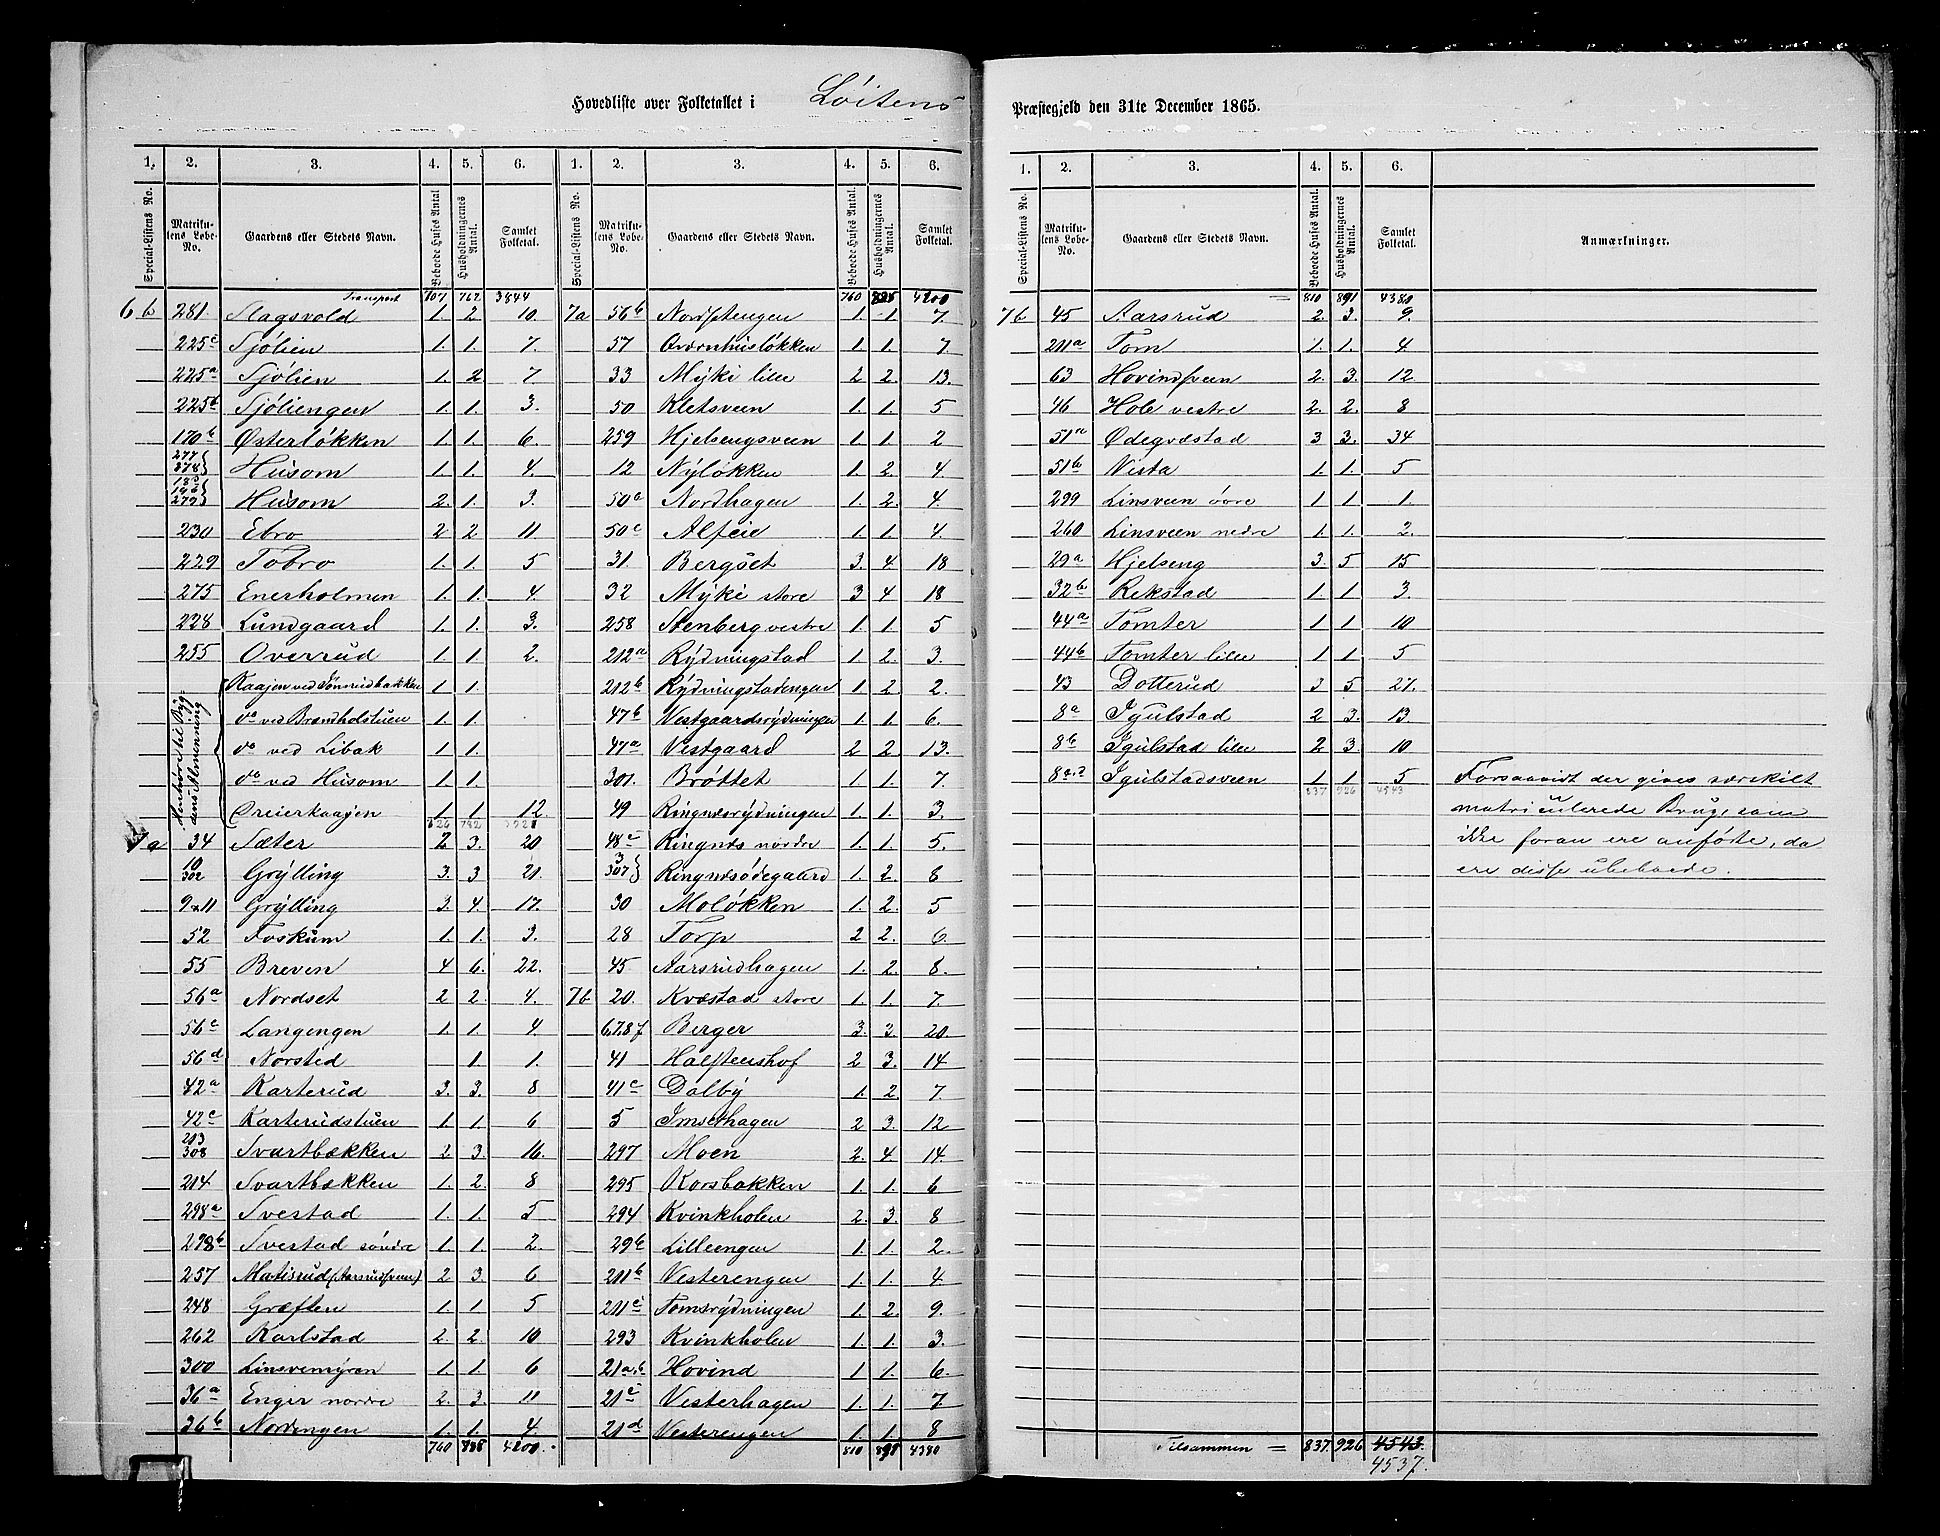 Hovedliste over Folketallet i Løitens Præstegjeld den 31te December 1865.
1. 2. 3. 4. 5. 6. 1. 2. 3. 4. 5. 6.
Special-Listens No. Matrikulens Løbe-No. Gaardens eller Stedets Navn. Beboede Huses Antal Husholdningernes Antal. Samlet Folketal. Special-Listens No. Matrikulens Løbe-No. Gaardens eller Stedets Navn. Beboede Huses Antal. Husholdningernes Antal. Samlet Folketal.
Transport 707 762 3844
6b 281 Slagsvold 1. 2. 10.
225c Sjølien 1. 1. 7.
225a Sjølien 1. 2 7
225b Sjøliengen 1. 1. 3.
170b Østerløkken 1. 1. 6.
277 278 Husom 1. 1. 4.
279 Husom 2. 1. 3.
230 Ebro 2 2 11
229 Tobro 1. 1. 5
275 Enerholmen 1. 1. 4.
228 Lundgaard 1. 1. 3.
255 Overrud 1. 1. 2.
Henhører til Bygdens Almenning
Kaajen ved Tønsrudbakken 1. 1.
do ved Brændholstuen 1. 1.
do ved Libak 1 1.
do ved Husom 1. 1.
Øreierkaajen 1. 1. 12.
7a 34 Sæter 2 3. 20
10 302 Grylling 3. 3 21.
9 & 11 Grylling 3. 4. 17.
52 Foskum 1. 1. 3.
55 Breven 4 6. 22.
56a Nordset 2 2. 4.
56c Langengen 1. 1. 4.
56d Norsted 1. 1.
42a Karterud 3. 3. 8
42c Karterudstuen 1. 1 6
213 308 Svartbækken 2 3. 16.
214 Svartbækken 1. 2. 8
298a Svestad 1. 1. 5
298b Svestad søndre 1. 1. 2.
257 Matisrud (Aarsrudsveen) 2 3. 6
248 Græften 1. 1. 5
262 Karlstad 2. 2 10
300 Linsvemyren 1. 1. 6
36a Enger nordre 2. 3. 11
36b Nordengen 1. 1. 4
760 4200.
760 4200
7a 56b Nordstengen 1. 1. 7.
57 Ovärnhusløkken 1. 1. 7
33 Myki lille 2 2. 13.
50 Kletsveen 1. 1. 5
259 Hjelsengsveen 1. 1 2
12 Nyløkken 1. 2. 4
50a Nordhagen 1. 2. 4.
50c Alfeie 1. 1 4.
31 Bergset 3. 4 18
32 Myki store 3 4 18
258 Stenberg vestre 1. 1 5
212a Rydningstad 1. 2. 3.
212b Rydningstadengen 1. 2 2.
47b Vestgaardsrydningen 1. 1 6.
47a Vestgaard 2 2. 13.
301. Brøttet 1. 1. 7.
49 Ringnæsrydningen 1. 1. 3.
48c Ringnæs nordre 1. 1. 5.
3 307 Ringnæsødegaard 1. 2. 8
30 Moløkken 1. 2. 5
28 Torp 2 2. 6
45. Aarsrudhagen 1. 2. 8.
7b 20. Kvæstad store 1. 1. 7.
6,7,8f Berger 3. 3. 20
41 Halstenshof 2 3. 14
41c Dalby 1. 2. 7
5 Imsethagen 2 3. 12
297 Moen 2. 4. 14.
295 Korsbakken 1. 1. 6
294 Kvinkholen 2. 3. 8
29b Lilleengen 1. 1. 2.
211b Vesterengen 1. 1. 4
211c Tomsrydningen 1. 2. 9.
293 Kvinkholen 1. 1. 3.
21a,b Hovind 1. 1. 6.
21c Vesterhagen 1. 1. 7
21d Vesterengen 1. 1. 8
810 4380
1. 2. 3. 4. 5. 6.
Special-Listens No. Matrikulens Løbe-No. Gaardens eller Stedets Navn. Beboede Huses Antal. Husholdningernes Antal. Samlet Folketal. Anmærkninger.
= 810 891 4380
7b 45 Aarsrud 2. 3. 9.
211a Tom 1. 1. 4
63 Hovindsveen 2. 3. 12.
46 Hole vestre 2. 2. 8
51a Ødegvæstad 3 3. 34
51b Vista 1. 1. 5
299 Linsveen øvre 1 1 1.
260 Linsveen nedre 1. 1. 2.
29a Hjelseng 3. 5 15
32b Rekstad 1. 1 3.
44a Tomter 1. 1 10
44b Tomter lille 1 1. 5
43 Dotterud 3 5 27.
8a Igulstad 2 3. 13
8b Igulstad lille 2 3. 10
Igulstadsveen 1 1 5 Forsaavidt der gives særskilt
837 926 4543
matriculerede Brug, som
ikke foran ere anførte, da
ere disse ubeboede.
Tilsammen = 837 926 4543.
4537.